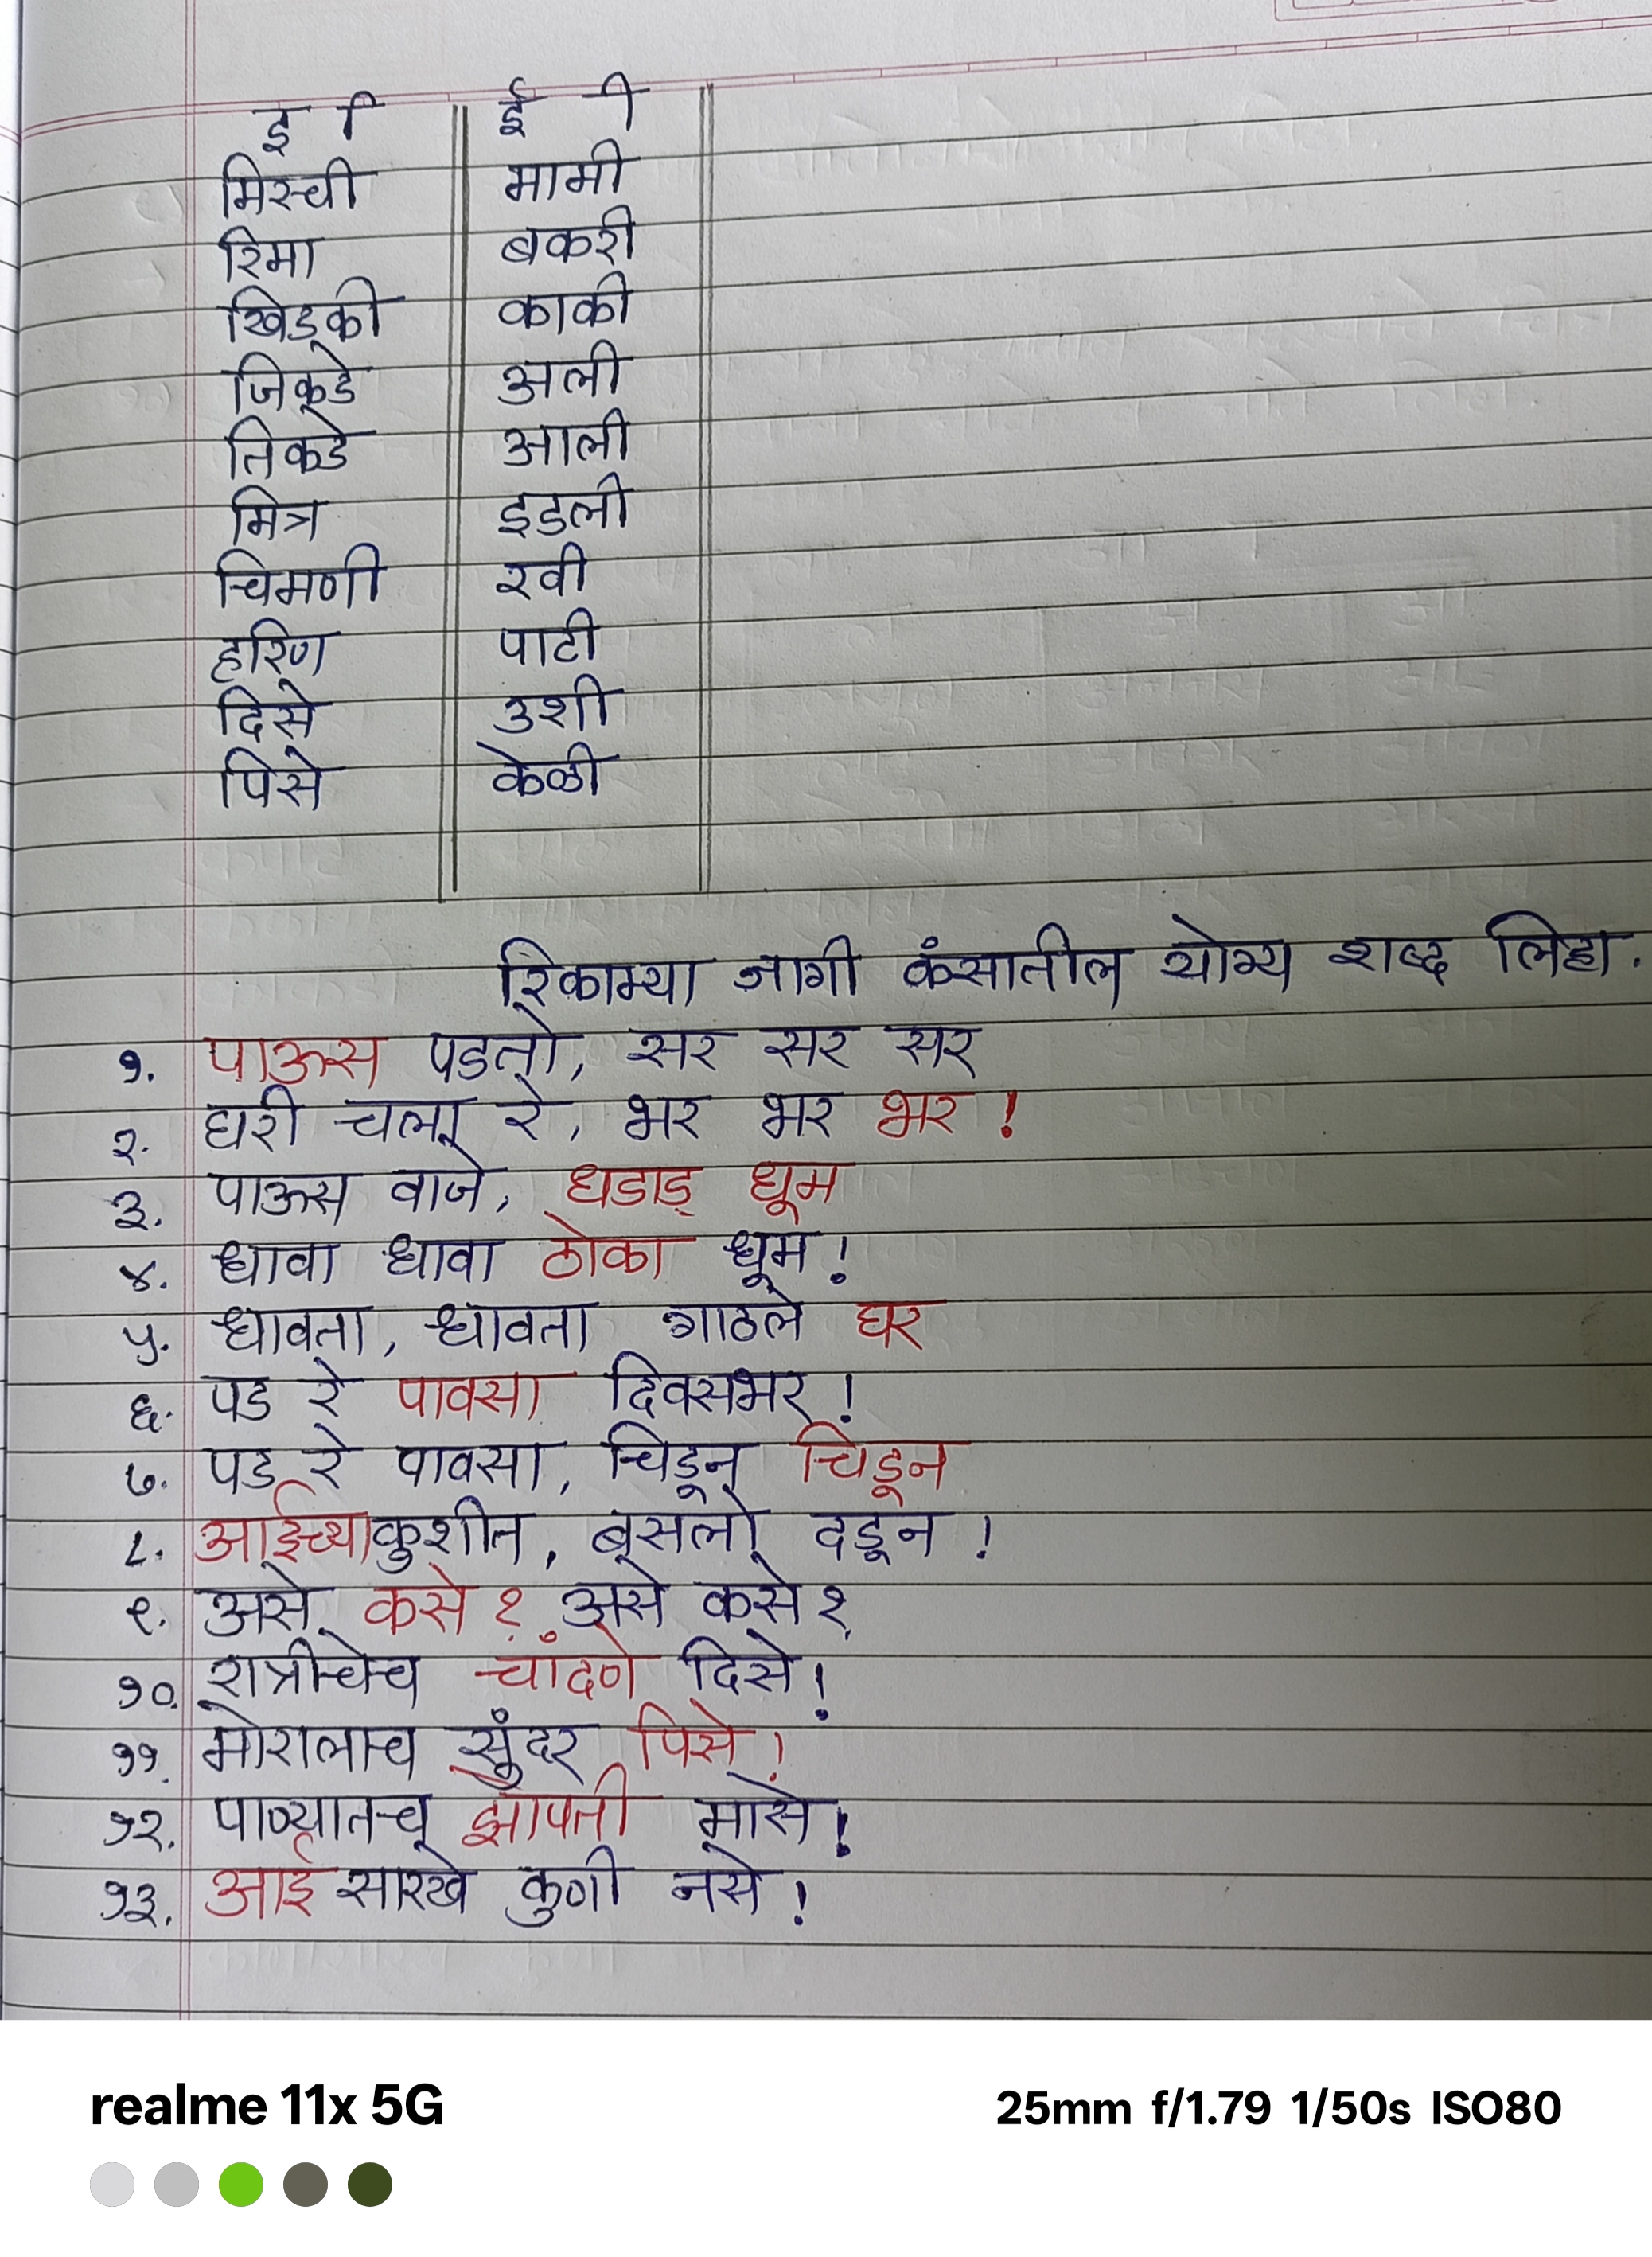 इ ि ई ी
मिरची मामी
रिमा बकरी
खिडकी काकी
जिकडे अली
तिकडे आली
मित्र इडली
चिमणी रवी
हरिण पाटी
दिसे उशी
पिसे केळी
रिकाम्या जागी कंसातील योग्य शब्द लिहा.
१. पाऊस पडतो, सर सर सर
२. घरी चला रे, भर भर भर !
३. पाऊस वाजे, धडाड् धूम
४. धावा धावा ठोका धूम !
५. धावता, धावता गाठले घर
६. पड रे पावसा दिवसभर !
७. पड रे पावसा, चिडून चिडून
८. आईच्या कुशीत, बसलो दडून !
९. असे कसे ? असे कसे ?
१०. रात्रीचेच चांदणे दिसे !
११. मोरालाच सुंदर पिसे !
१२. पाण्यातच झापती मासे !
१३. आई सारखे कुणी नसे !
realme 11x 5G 25mm f/1.79 1/50s ISO80